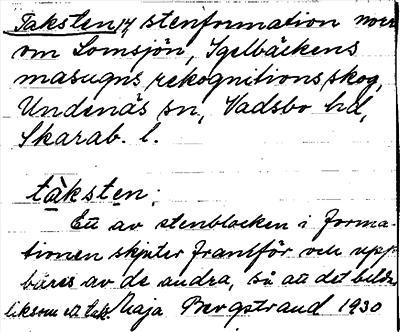 Taksten, stenformation norr
om Lomsjön, Igelbäckens
masugns rekognitionsskog,
Undenäs sn, Vadsbo hd,
Skarab. l.
tàksten.
Ett av stenblocken i forma-
tionen skjuter framför och upp-
bäres av de andra, så att det bildas
liksom ett tak. Maja Bergstrand 1930